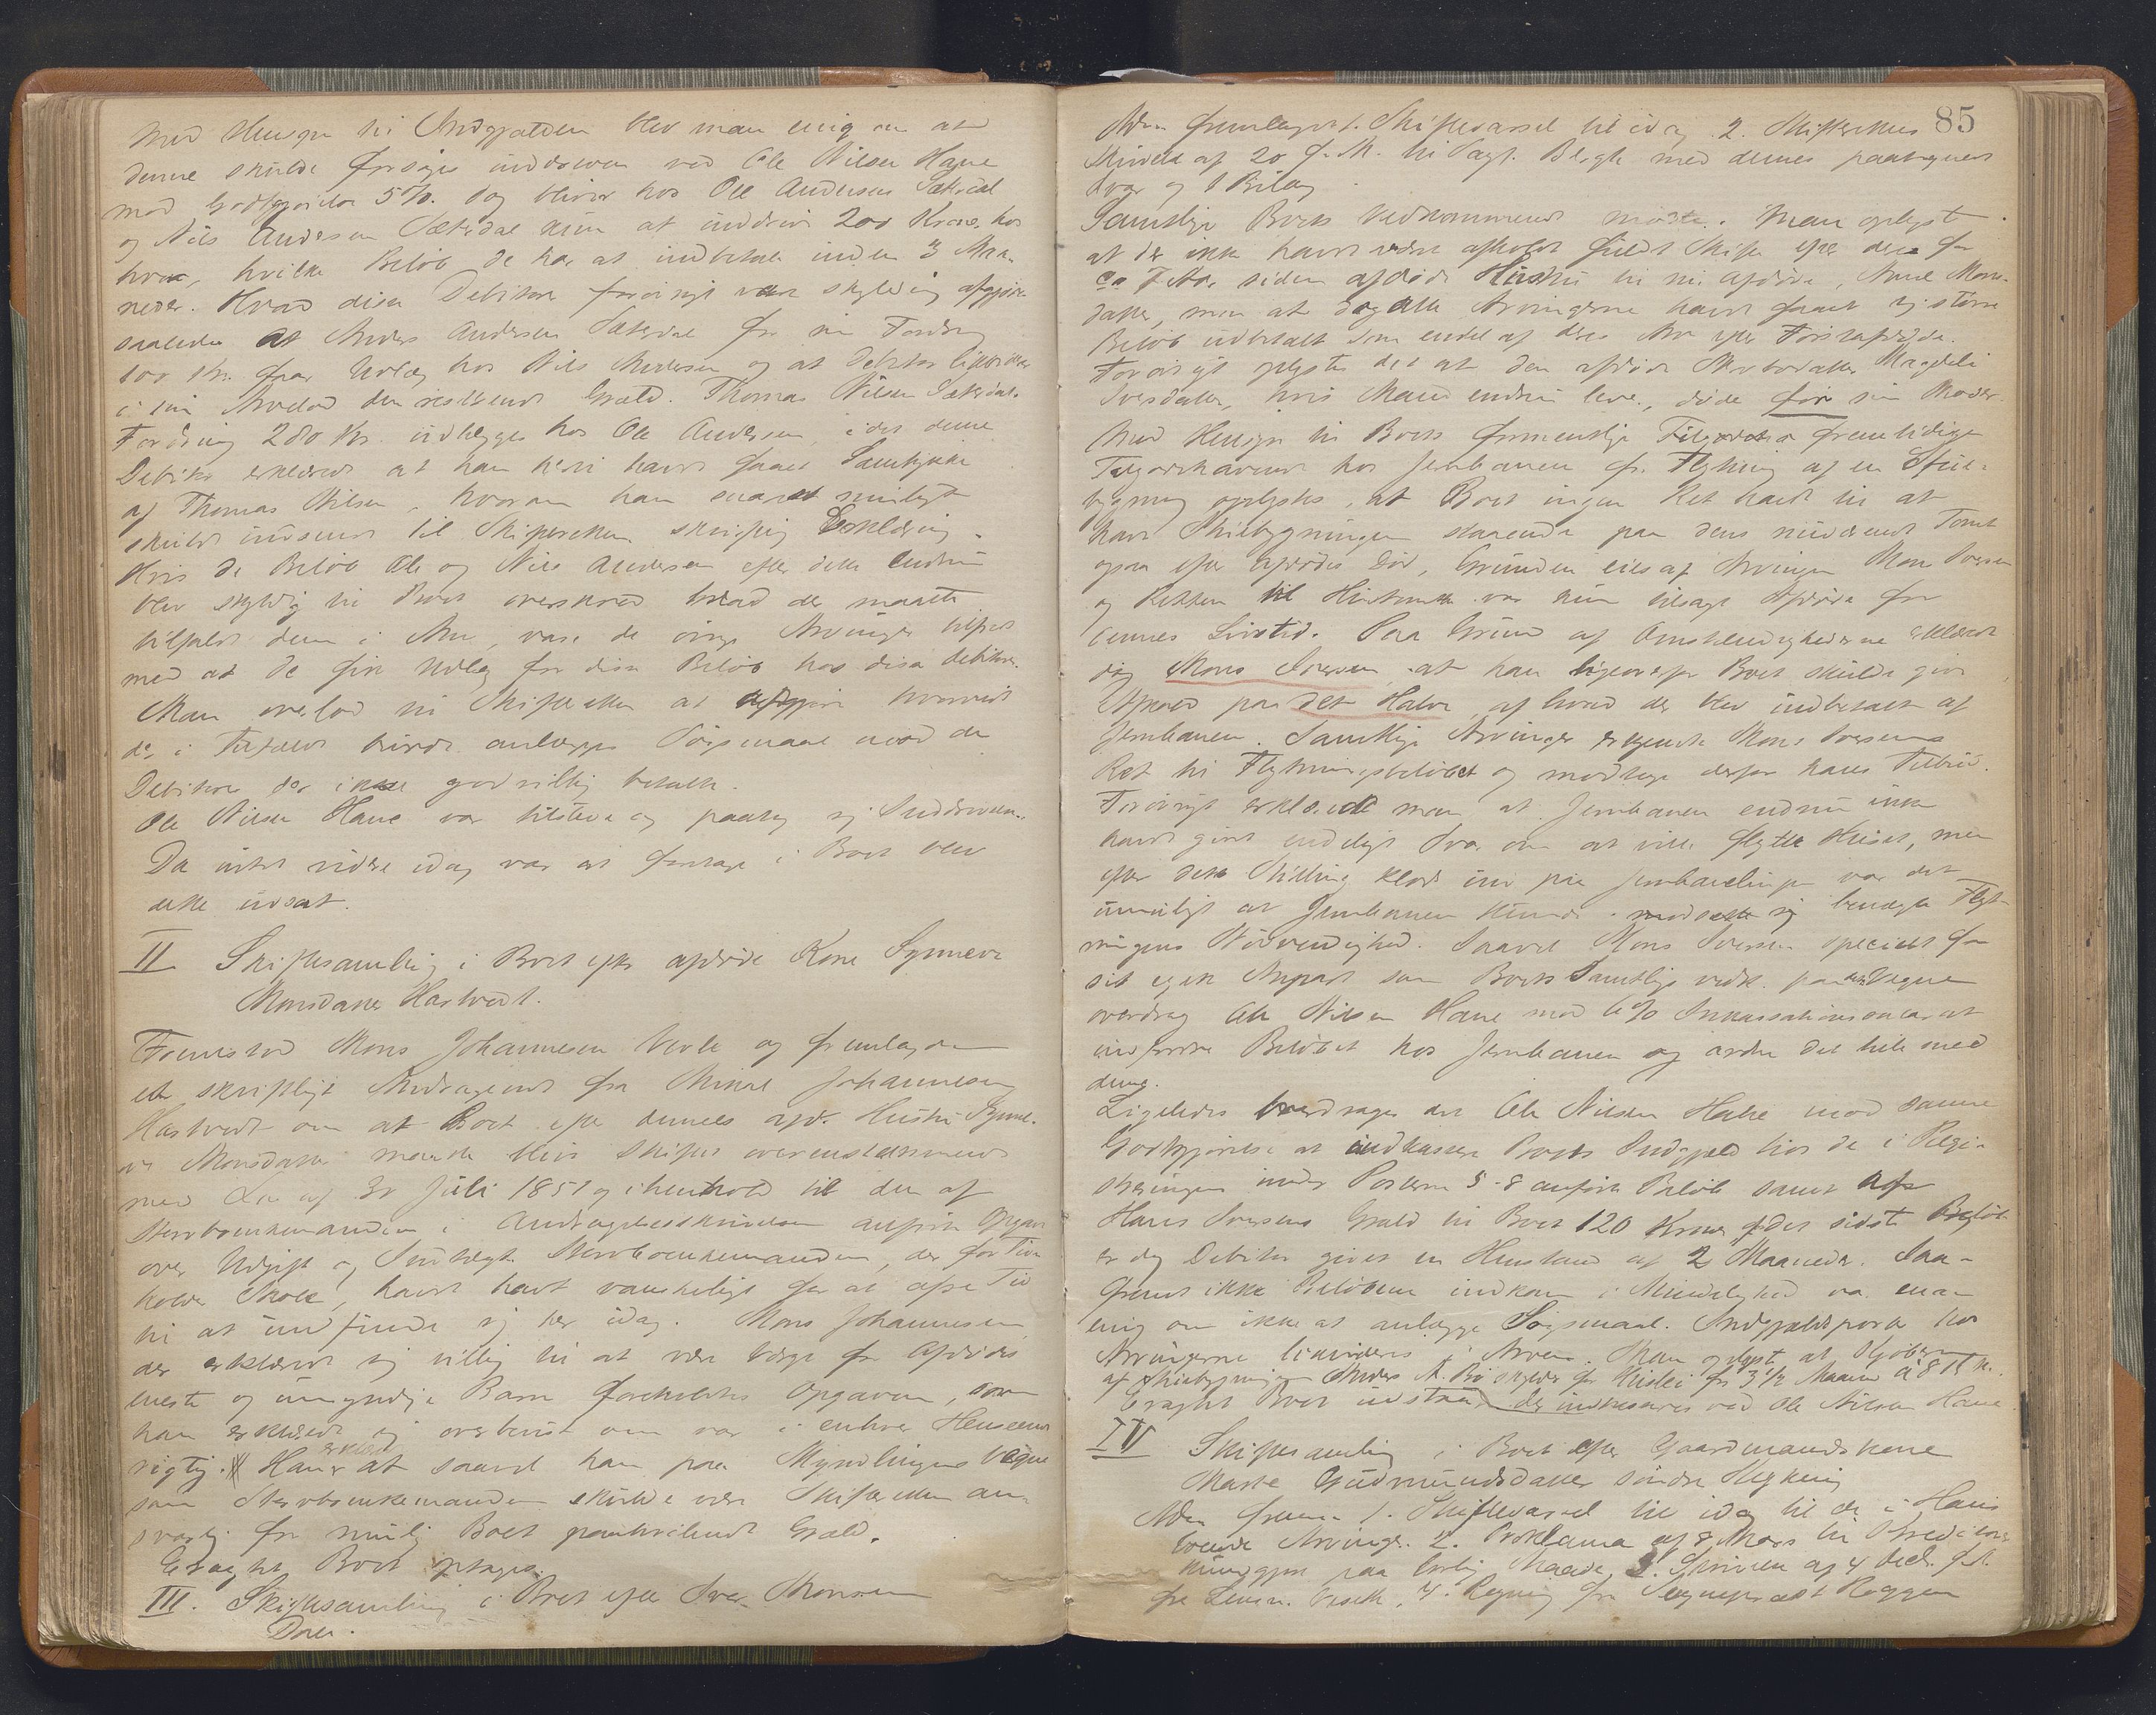 Med Hensyn til Indgjælden blev man enig om at
denne skulde forsøges inddreven ved Ole Nilsen Hane
mod Godtgjørelse 5%. Dog bliver hos Ole Andersen Sætesdal
og Nils Andersen Sætesdal kun at inddrive 200 Kroner hos
hver, hvilke Beløb de har at indbetale inden 3 Maa-
neder. Hvad disse Debitorer forøvrigt være skyldig afgjøres
saaledes at Anders Andersen Sætesdal for sin Fordring
100 Kr. faar Udlæg hos Nils Andersen og at Debitor likviderer
i sin Arvelod den resterende Gjæld. Thomas Nilsen Sætesdals
Fordring 280 Kr. udlægges hos Ole Andersen, idet denne
Debitor erklærede at han hertil havde faaet Samtykke
af Thomas Nilsen, hvorom han snarest muligt
skulde indsende til Skifteretten skriftlig Erklæring.
Hvis de Beløb Ole og Nils Andersen efter dette endnu
blev skyldig til Boet overskred hvad der maatte
tilfalde dem i Arv, vare de øvrige Arvinger tilfreds
med at de fik Udlæg for disse Beløb hos disse Debitorer.
Man overlod til Skifteretten at afgjøre hvorvidt
der i Tilfælde burde anlægges Søgsmaal mod de
Debitorer der ikke godvillig betalte.
Ole Nilsen Hane var tilstede og paatog sig Inddrivelsen.
Da intet videre idag var at foretage i Boet blev
dette udsat.
II Skiftesamling i Boet efter afdøde Kone Synneve
Monsdatter Hastvedt.
Fremstod Mons Johannesen Verle og fremlagde
et skriftligt Andragende fra Mikal Johannesen
Hastvedt om at Boet efter dennes afd. Hustru Synne-
ve Monsdatter maatte blive skiftet overensstemmende
med Lov af 30 Juli 1851 og i henhold til den af
Sterboenkemanden i Andragendeskrivelsen anførte Opgave
over Udgift og Indtægt. Sterboenkemanden, der for Tiden
holder Skole, havde havt vanskeligt for at afse Tid
til at indfinde sig her idag. Mons Johannesen
der erklærede sig villig til at være Værge for Afdødes
eneste og umyndige Barn foreholdtes Opgaven, som
han erklærede sig overbevist om var i enhver Henseende
rigtig. Han erklærede at saavel han paa Myndlingens Vegne
som Sterboenkemanden skulde være Skifteretten an-
svarlig for mulig Boet paahvilende Gjæld.
Eragtet Boet optages.
III. Skiftesamling i Boet efter Iver Monsen
Dale.
85
Adm. fremlagde 1. Skiftevarsel til idag. 2. Skifterettens
Skrivelse af 20 f. M. til Sagf. Blegh med dennes paategnede
Svar og 1 Bilag.
Samtlige Boets Vedkommende mødte. Man oplyste
at der ikke havde været afholdt fuldt Skifte efter den for
ca 7 Aar siden afdøde Hustru til nu Afdøde, Anne Mons-
datter, men at dog alle Arvingerne havde faaet sig større
Beløb udbetalt som endel af deres Arv efter Førstafdøde.
Forøvrigt oplystes det at den afdøde Arvedatter Magdeli
Iversdatter, hvis Mand endnu lever, døde før sin Moder.
Med Hensyn til Boets formentlige fremtidige
Tilgodehavende hos Jernbanen for Flytning af en Skole-
bygning oplystes, at Boet ingen Ret havde til at
have Skolebygningen staaende paa dens nuværende Tomt
ogsaa efter Afdødes Død, Grunden eies af Arvingen Mons Iversen
og Retten til Hustomten var kun tilsagt Afdøde for
dennes Livstid. Paa Grund af Omstændighederne erklærede
dog Mons Iversen, at han ligeoverfor Boet skulde give
Afkald paa det Halve af hvad der blev indbetalt af
Jernbanen. Samtlige Arvinger erkjendte Mons Iversens
Ret til Flytningsbeløbet og modtage derfor hans Tilbud.
Forøvrigt erklærede man at Jernbanen endnu ikke
havde givet endeligt Svar om at ville flytte Huset, men
efter dets Stilling klods ind paa Jernbanelinjen var det
umuligt at Jernbanen kunde benægte Flyt-
ningens Nødvendighed. Saavel Mons Iversen specielt for
sit eget Anpart som Boets Samtlige vedk. paa Vegne
overdrog Ole Nilsen Hane mod 6% Inkassationssalær at
indfordre Beløbet hos Jernbanen og ordne det hele med
denne.
Ligeledes overdrages det Ole Nilsen Hane mod samme
Godtgjørelse at indkassere Boets Indgjæld hos de i Regi-
streringen under Posterne 5-8 anførte Beløb samt
Hans Iversens Gjæld til Boet 120 Kroner. For det sidste Beløb
er dog Debitor givet en Henstand af 2 Maaneder. Saa-
fremt ikke Beløbene indkom i Mindelighed var man
enig om ikke at anlægge Søgsmaal. Indgjældsposter hos
Arvingerne likvideres i Arven. Man oplyst at Kjøberen
af Skolebygningen Anders A. Bø skylder for Husleie for 3½ Maaned à 8 Kr.
Eragtet Boet udstaa. Det indkasseres ved Ole Nilsen Hane.
IV Skiftesamling i Boet efter Gaardmandskone
Marte Gudmundsdatter søndre Rekving
Adm. fremla. 1. Skiftevarsel til idag til de i Hans
boende Arvinger. 2. Proklama af 8 Mars til Kreditorer
kundgjort paa lovlig Maade, 3. Skrivelse af 4 Decbr. f.A.
fra Lensm. Vasek, 4. Regning fra Sogneprest Roggen